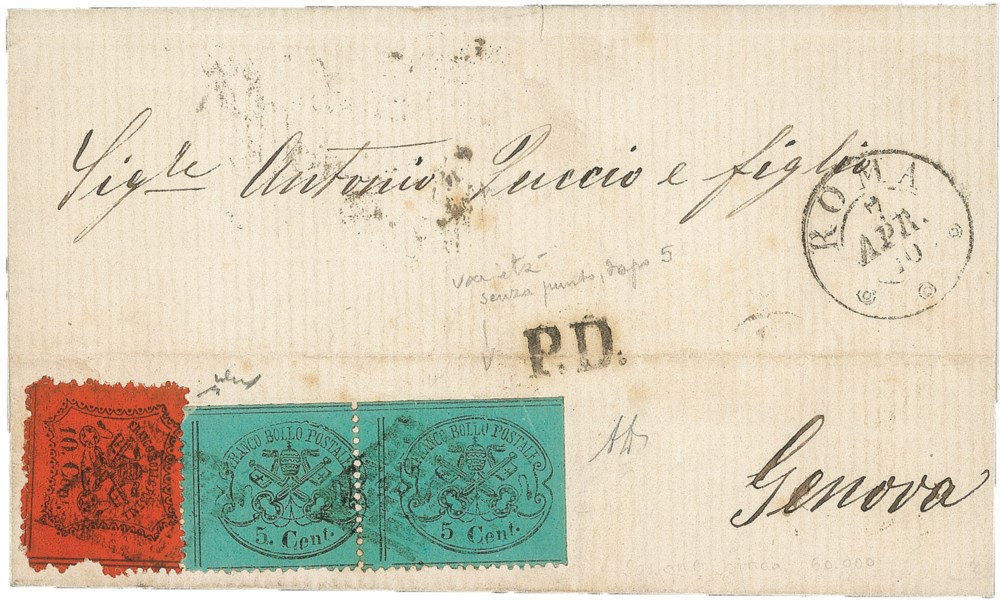 Sigle Antonio Puccio e figlio
ROMA
7
APR.
70
varietà
senza punto, dopo 5
P.D.
10. Cent.
FRANCO BOLLO POSTALE
5. Cent.
FRANCO BOLLO POSTALE
5 Cent.
Genova
60.000